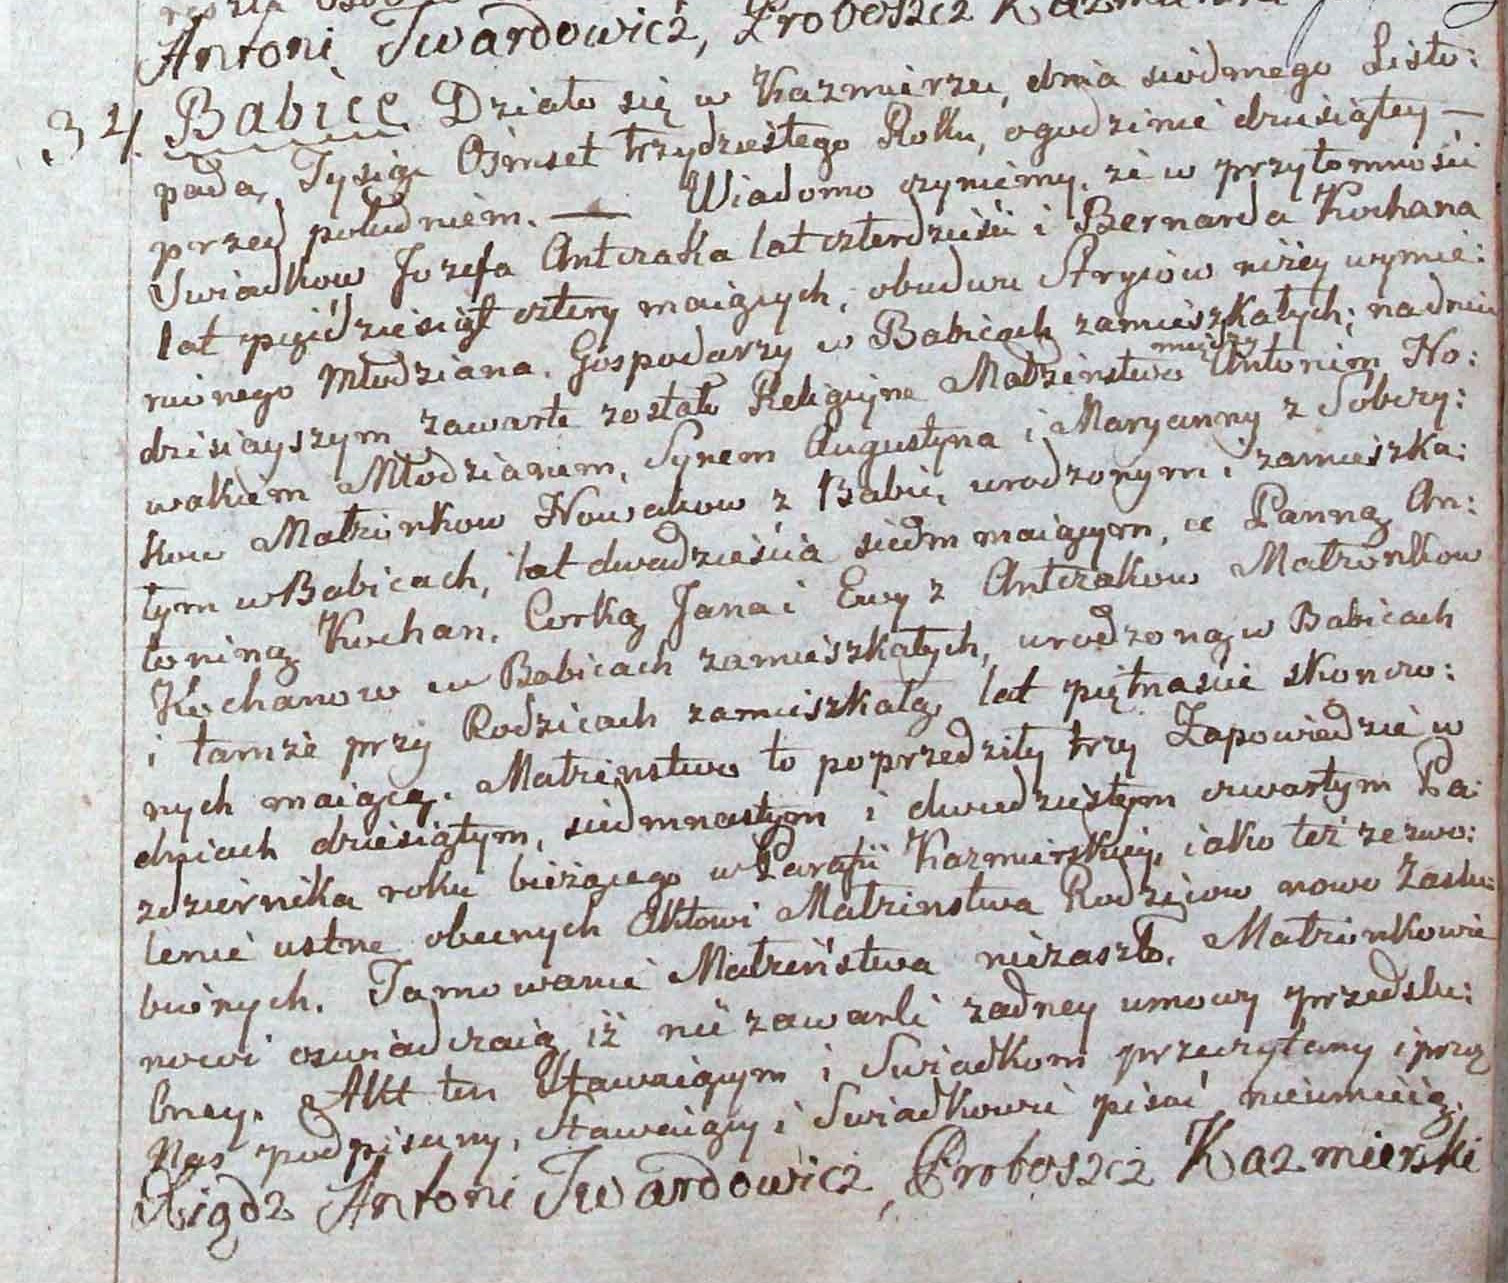 Antoni Twardowicz, Proboszcz
34 Babice Działo się w Kazmierzu, dnia siodmego Listo:
pada, Tysiąc Osmset trzydziestego Roku, ogodzinie dziesiątey —
przed południem. — Wiadomo czyniemy, że w przytomności
Swiadkow Jozefa Antczaka lat czterdzieści i Bernarda Kochana
lat pięćdziesiąt cztery maiących, obudwu Stryiow niżey wymie:
nionego Młodziana, Gospodarzy w Babicach zamieszkałych; na dniu
dzisieyszym zawarte zostało Religijne Małżeństwo między Antonim No:
wakiem Młodzianem, Synem Augustyna i Maryanny z Sobczy:
kow Małżonkow Nowakow z Babic, urodzonym i zamieszka:
łym w Babicach, lat dwadzieścia siedm maiącym, a Panną An:
toniną Kochan, Corką Jana i Ewy z Antczakow Małżonkow
Kochanow w Babicach zamieszkałych, urodzoną w Babicach
i tamże przy Rodzicach zamieszkałą, lat piętnaście skonczo:
nych maiącą. Małżenstwo to poprzedziły trzy Zapowiedzie w
dniach dziesiątym, siedmnastym i dwudziestym czwartym Pa:
zdziernika roku bieżącego w Parafii Kazmierskiey, iako też zezwo:
lenie ustne obecnych Aktowi Małżenstwa Rodzicow nowo Zaslu:
bionych. Tamowanie Małżeństwa niezaszło. Małżonkowie
nowi oswiadczaią iż nie zawarli żadney umowy przedslu:
bney. Akt ten Stawaiącym i Swiadkom przeczytany i przez
Nas podpisany, Stawaiący i Swiadkowie pisać nieumieią.
Xiądz Antoni Twardowicz, Proboszcz Kazmierski